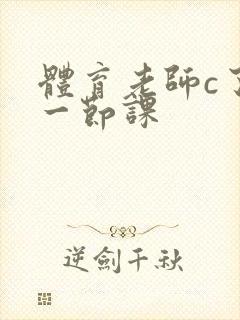 體育老師c了
一節課
逆劍千秋